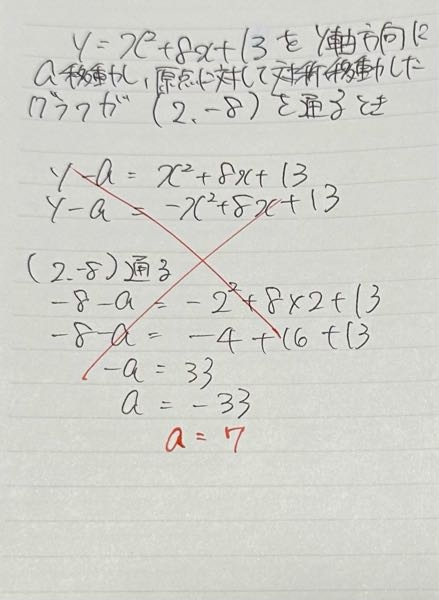 y=x²+8x+13をy軸方向に
a移動し、原点に対して対称移動した
グラフが(2.-8)を通るとき
y-a=x²+8x+13
y-a=-x²+8x+13
(2.-8)通る
-8-a=-2²+8×2+13
-8-a=-4+16+13
-a=33
a=-33
a=7